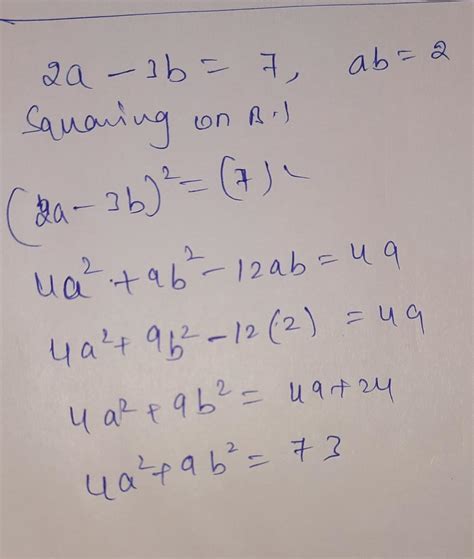 2a - 3b = 7, ab = 2
Squaring on B.S
(2a - 3b)² = (7)²
4a² + 9b² - 12ab = 49
4a² + 9b² - 12(2) = 49
4a² + 9b² = 49 + 24
4a² + 9b² = 73